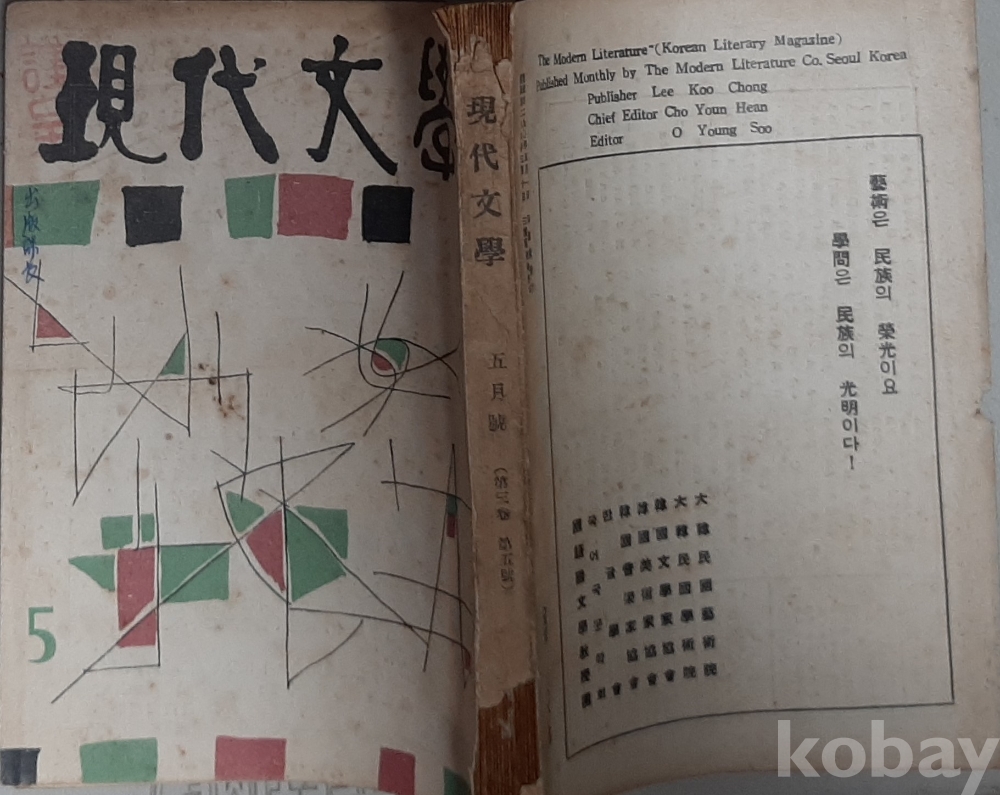 現代文學
出版部校
5
現代文學
五月號
(第三卷 第五號)
The Modern Literature"(Korean Literary Magazine)
Published Monthly by The Modern Literature Co. Seoul Korea
Publisher Lee Koo Chong
Chief Editor Cho Youn Hean
Editor O Young Soo
藝術은 民族의 榮光이요
學問은 民族의 光明이다!
大韓民國藝術院
大韓民國學術院
韓國文學家協會
韓國美術家協會
韓國音樂家協會
한글學會
국어국문학회
國語國文學敎授團
kobay